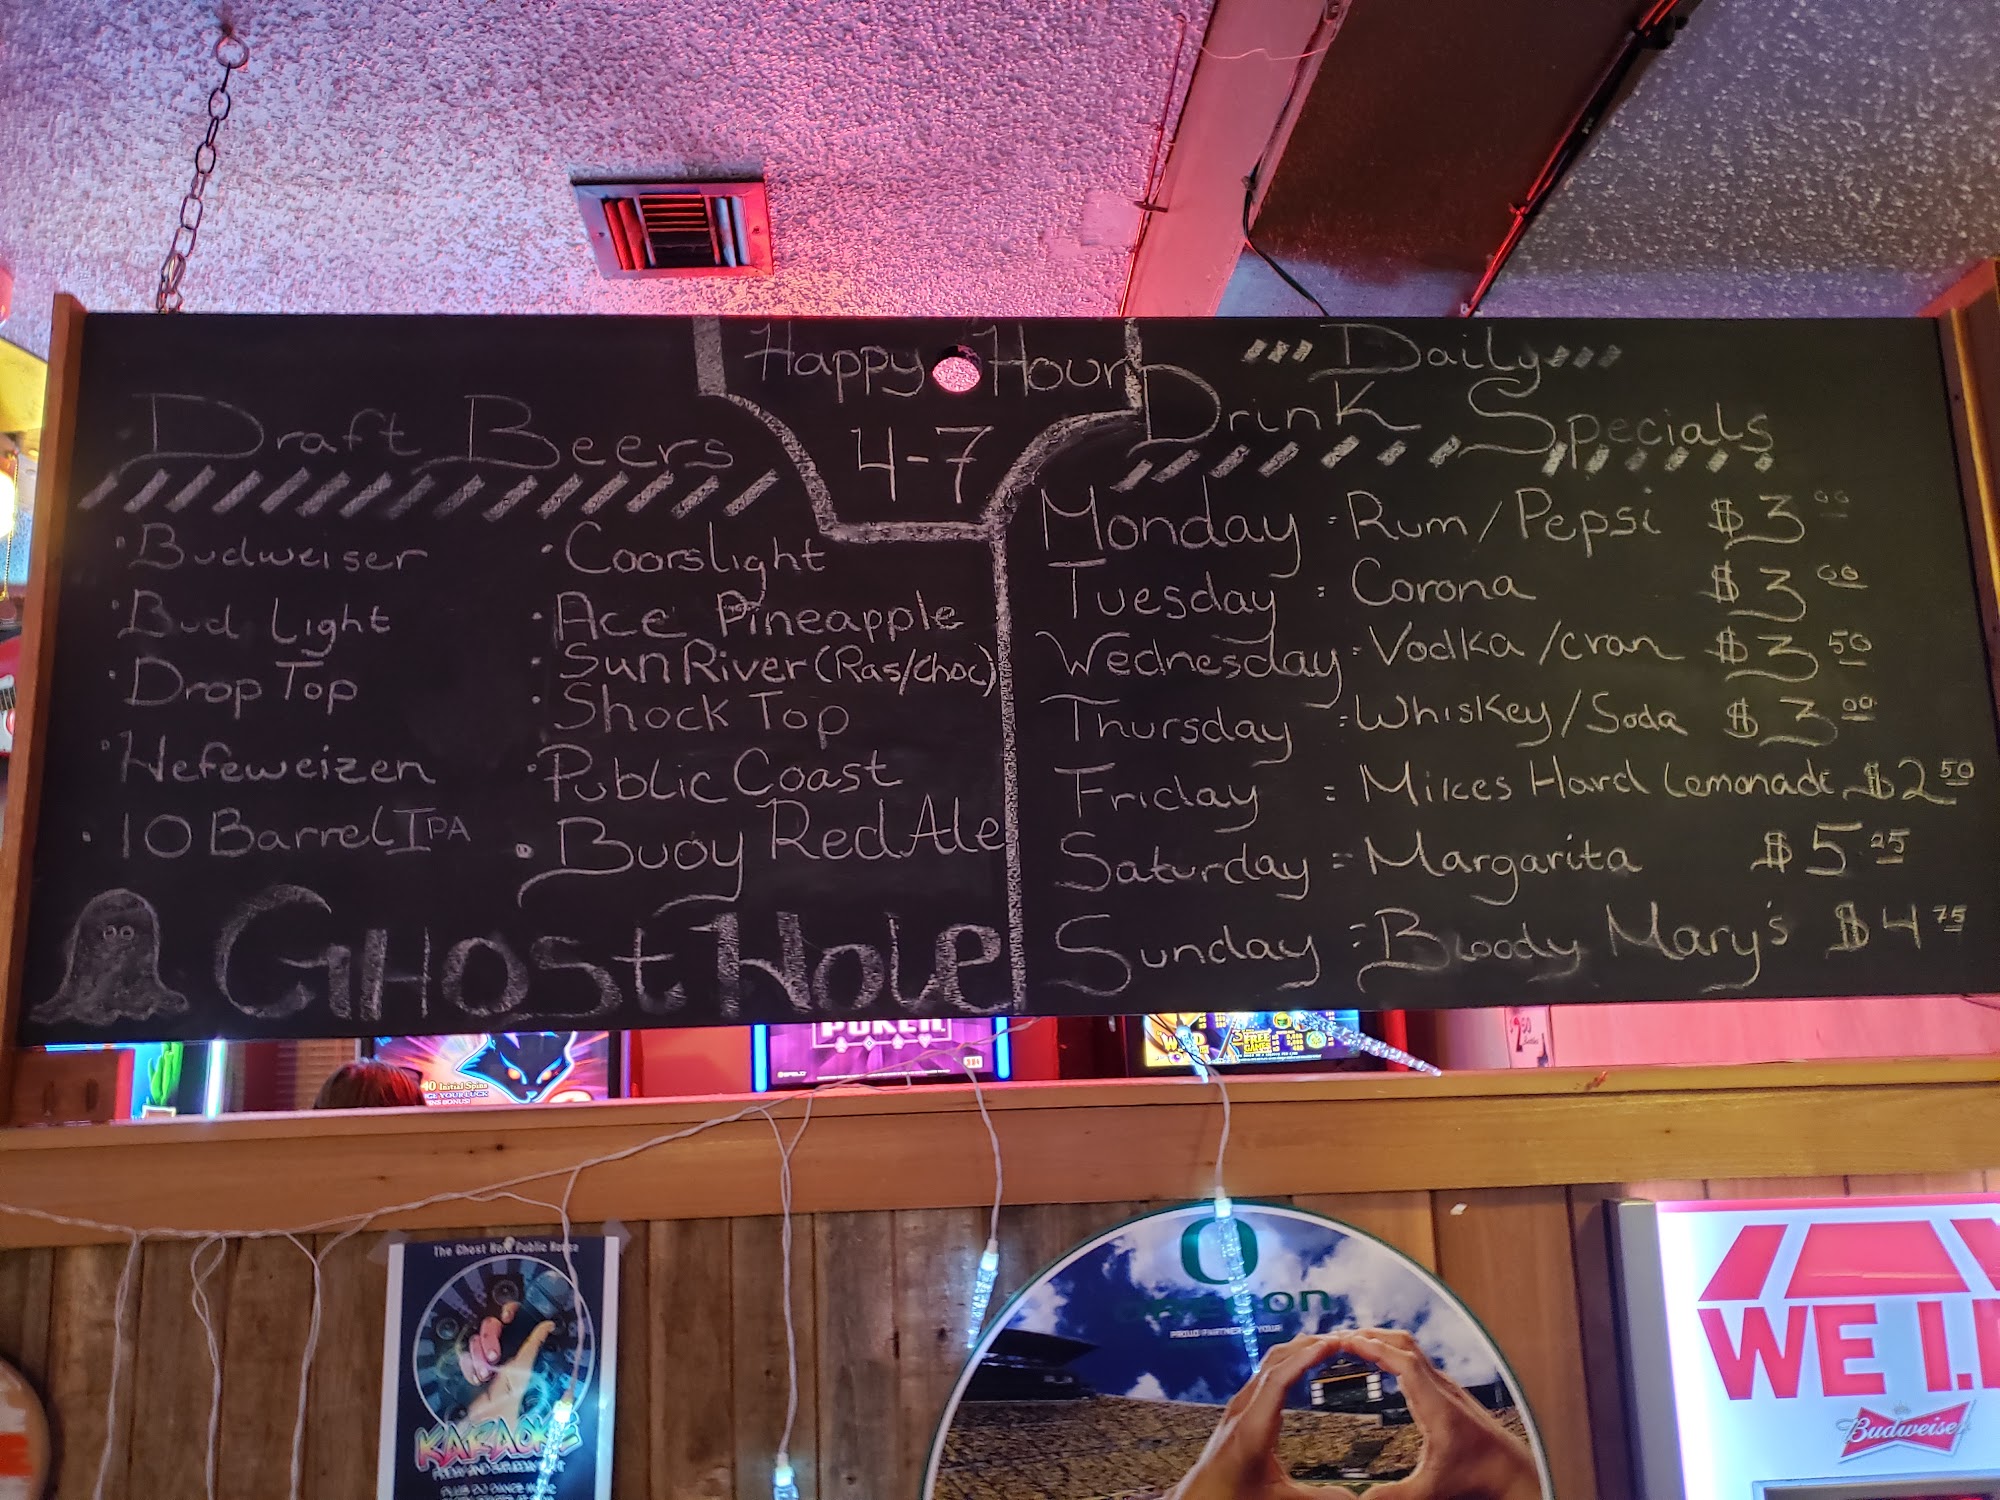 Happy Hour
4-7
Draft Beers
· Budweiser
· Bud Light
· Drop Top
· Hefeweizen
· 10 Barrel IPA
· Coorslight
· Ace Pineapple
· Sun River (Ras/choc)
· Shock Top
· Public Coast
· Buoy Red Ale
GHost Hole
Daily
Drink Specials
Monday : Rum/Pepsi $3 00
Tuesday : Corona $3 00
Wednesday : Vodka/cran $3 50
Thursday : Whiskey/Soda $3 00
Friday : Mikes Hard Lemonade $2 50
Saturday : Margarita $5.25
Sunday : Bloody Mary's $4 75
40 Initial Spins
POKER
WILD
FREE
The Ghost Hole Public House
KARAOKE
O
OREGON
PROUD PARTNER OF YOUR
WE I.D
Budweiser